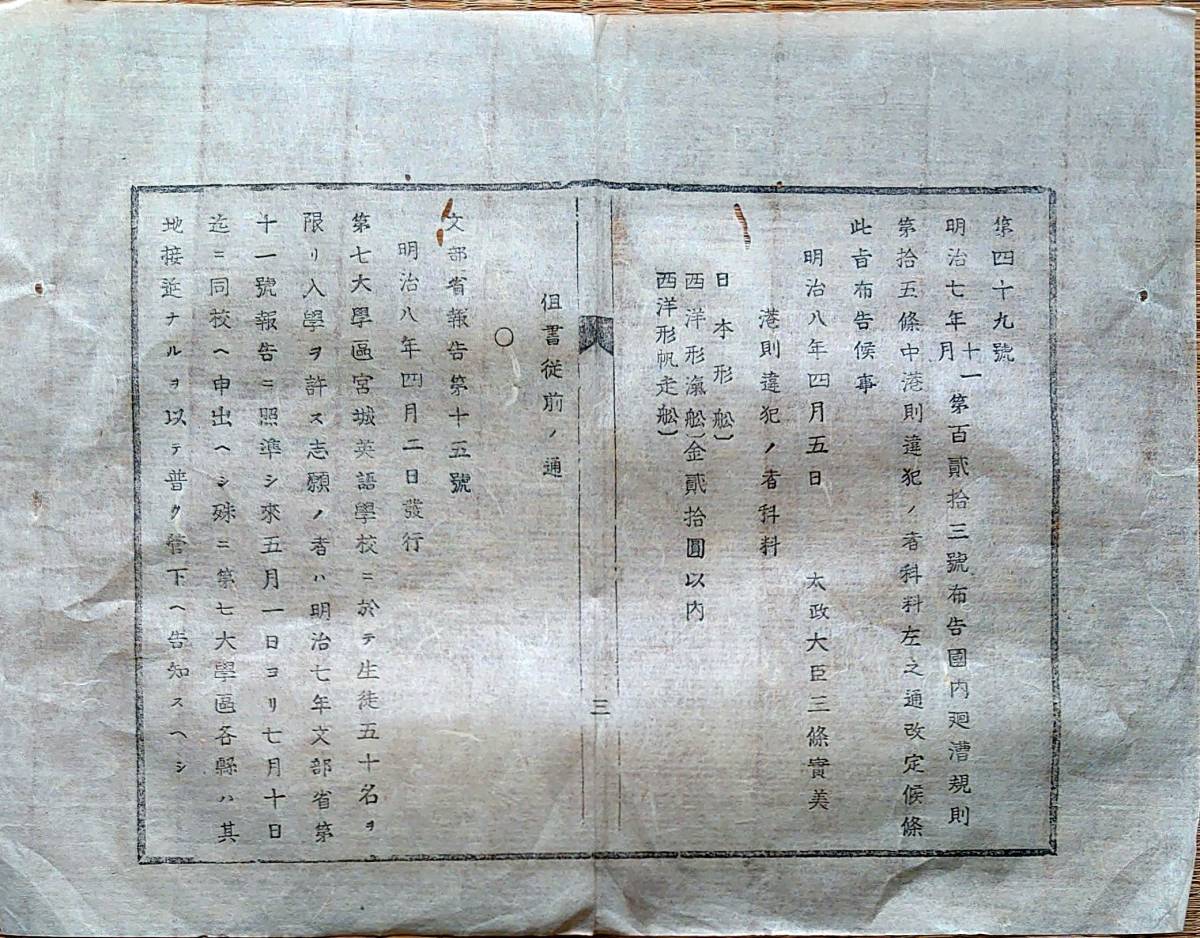 第四十九號
明治七年十一月第百貳拾三號布告國内廻漕規則
第拾五條中港則違犯ノ者科料左之通改定候條
此旨布告候事
明治八年四月五日　太政大臣三條實美
港則違犯ノ者科料
日本形舩
西洋形滊舩　金貳拾圓以内
西洋形帆走舩
三
但書従前ノ通
〇
文部省報告第十五號
明治八年四月二日發行
第七大學區宮城英語學校ニ於テ生徒五十名ヲ
限リ入學ヲ許ス志願ノ者ハ明治七年文部省第
十一號報告ニ照準シ來五月一日ヨリ七月十日
迄ニ同校ヘ申出ヘシ殊ニ第七大學區各縣ハ其
地接近ナルヲ以テ普ク管下ヘ告知スヘシ